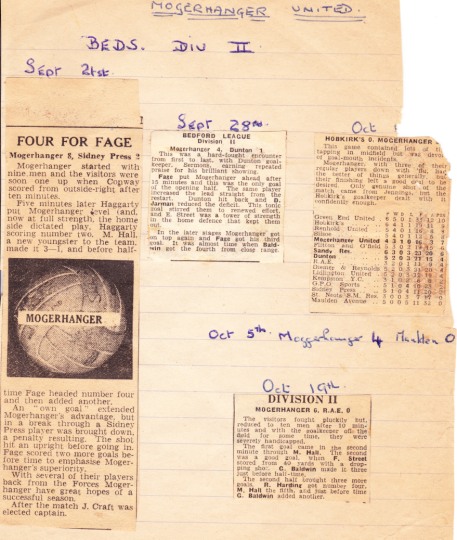 MOGERHANGER UNITED.
BEDS. DIV II
Sept 21st.
FOUR FOR FAGE
Mogerhanger 8, Sidney Press 2
Mogerhanger started with
nine men and the visitors were
soon one up when Copway
scored from outside-right after
ten minutes.
Five minutes later Haggarty
put Mogerhanger level and,
now at full strength, the home
side dictated play. Haggarty
scoring number two. M. Hall,
a new youngster to the team,
made it 3—1, and before half-
MOGERHANGER
time Fage headed number four
and then added another.
An "own goal" extended
Mogerhanger's advantage, but
in a break through a Sidney
Press player was brought down,
a penalty resulting. The shot
hit an upright before going in.
Fage scored two more goals be-
fore time to emphasise Moger-
hanger's superiority.
With several of their players
back from the Forces Moger-
hanger have great hopes of a
successful season.
After the match J. Craft was
elected captain.
Sept 28th.
BEDFORD LEAGUE
Division II
Mogerhanger 4, Dunton 1
This was a hard-fought encounter
from first to last, with Dunton goal-
keeper, Bermous, earning repeated
praise for his brilliant showing.
Fage put Mogerhanger ahead after
3 minutes and this was the only goal
of the opening half. The same player
increased the lead straight from the
restart. Dunton hit back and D.
Jarman reduced the deficit. This tonic
goal stirred them to renewed effort,
and E. Street was a tower of strength
in the home defence that kept them
out.
In the later stages Mogerhanger got
on top again and Fage got his third
goal. It was almost time when Bald-
win got the fourth from close range.
Oct
HOBKIRK'S 0, MOGERHANGER
This game contained lots of
tapping in midfield but was
of goal-mouth incidents.
Mogerhanger, with three of their
regular players down with flu, had
the better of things generally, but
their finishing left a lot to be
desired. Only genuine shot of the
match came from Jennings, but the
Hobkirk's goalkeeper dealt with it
confidently enough.
Green End United
Hobkirk's
Renhold United
Blunham
Mogerhanger United
Sandy Res.
Dunton
R.A.E.
Dheney & Reynolds
Lidlington United
Kempston Y.C.
G.P.O. Sports
Sidney Press
St. Neots S.M. Res.
Maulden Athletic
Oct 5th Moggerhanger 4 Maulden 0
Oct 19th.
DIVISION II
MOGERHANGER 6, R.A.E. 0
The visitors fought pluckily but,
reduced to ten men after 10
minutes and with the goalkeeper off the
field for some time, they were
severely handicapped.
The first goal came in the second
minute through M. Hall. The second
was a good goal, when F. Street
scored from 40 yards with a drop-
ping shot. C. Baldwin made it three
just before half-time.
The second half brought three more
goals. R. Harding got number four,
M. Hall the fifth, and just before time
C. Baldwin added another.